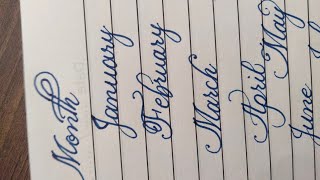 Month
January
February
March
April
May
June